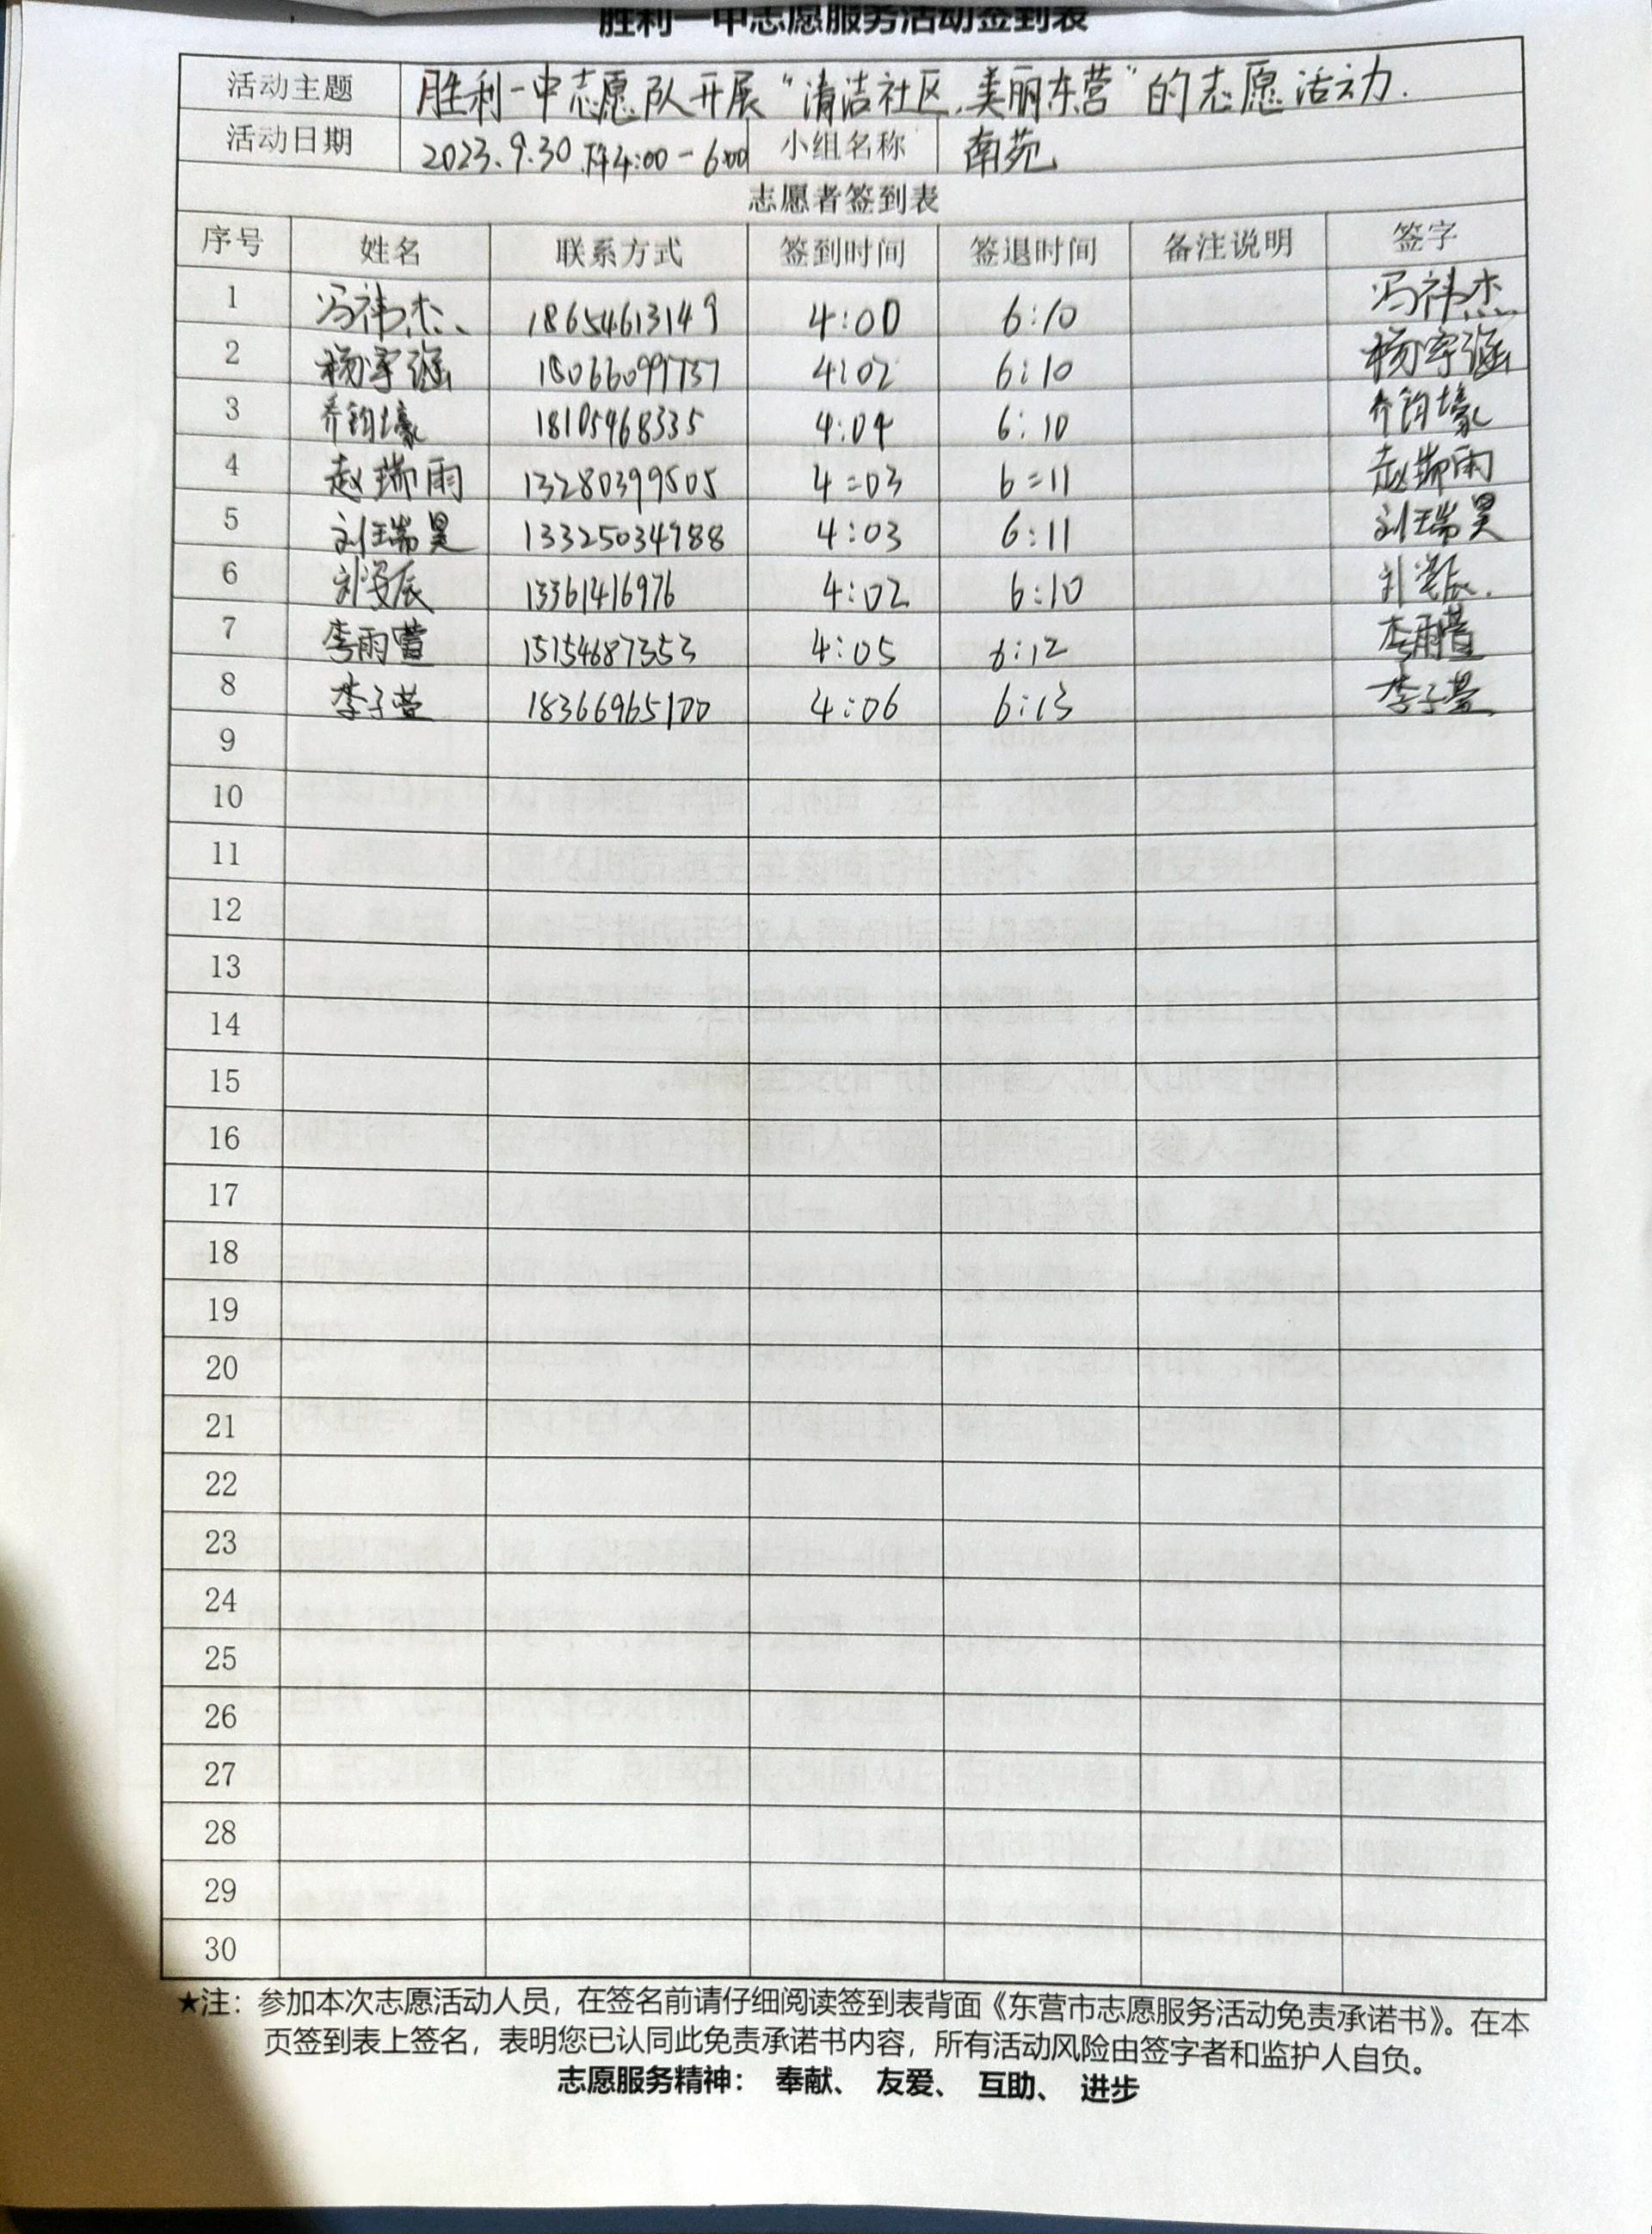 胜利一中志愿服务活动签到表
活动主题 胜利一中志愿队开展“清洁社区,美丽东营”的志愿活动.
活动日期 2023.9.30 下午4:00-6:00 小组名称 南苑
志愿者签到表
序号 姓名 联系方式 签到时间 签退时间 备注说明 签字
1 冯祎杰 18654613149 4:00 6:10 冯祎杰
2 杨宇涵 4:02 6:10 杨宇涵
3 乔钧壕 18105468335 4:04 6:10 乔钧壕
4 赵瑞雨 13280399505 4:03 6:11 赵瑞雨
5 刘瑞昊 13325034988 4:03 6:11 刘瑞昊
6 13361416976 4:02 6:10
7 李雨萱 15154687353 4:05 6:12 李雨萱
8 李子萱 18366965100 4:06 6:13 李子萱
9
10
11
12
13
14
15
16
17
18
19
20
21
22
23
24
25
26
27
28
29
30
★注：参加本次志愿活动人员，在签名前请仔细阅读签到表背面《东营市志愿服务活动免责承诺书》。在本
页签到表上签名，表明您已认同此免责承诺书内容，所有活动风险由签字者和监护人自负。
志愿服务精神： 奉献、 友爱、 互助、 进步